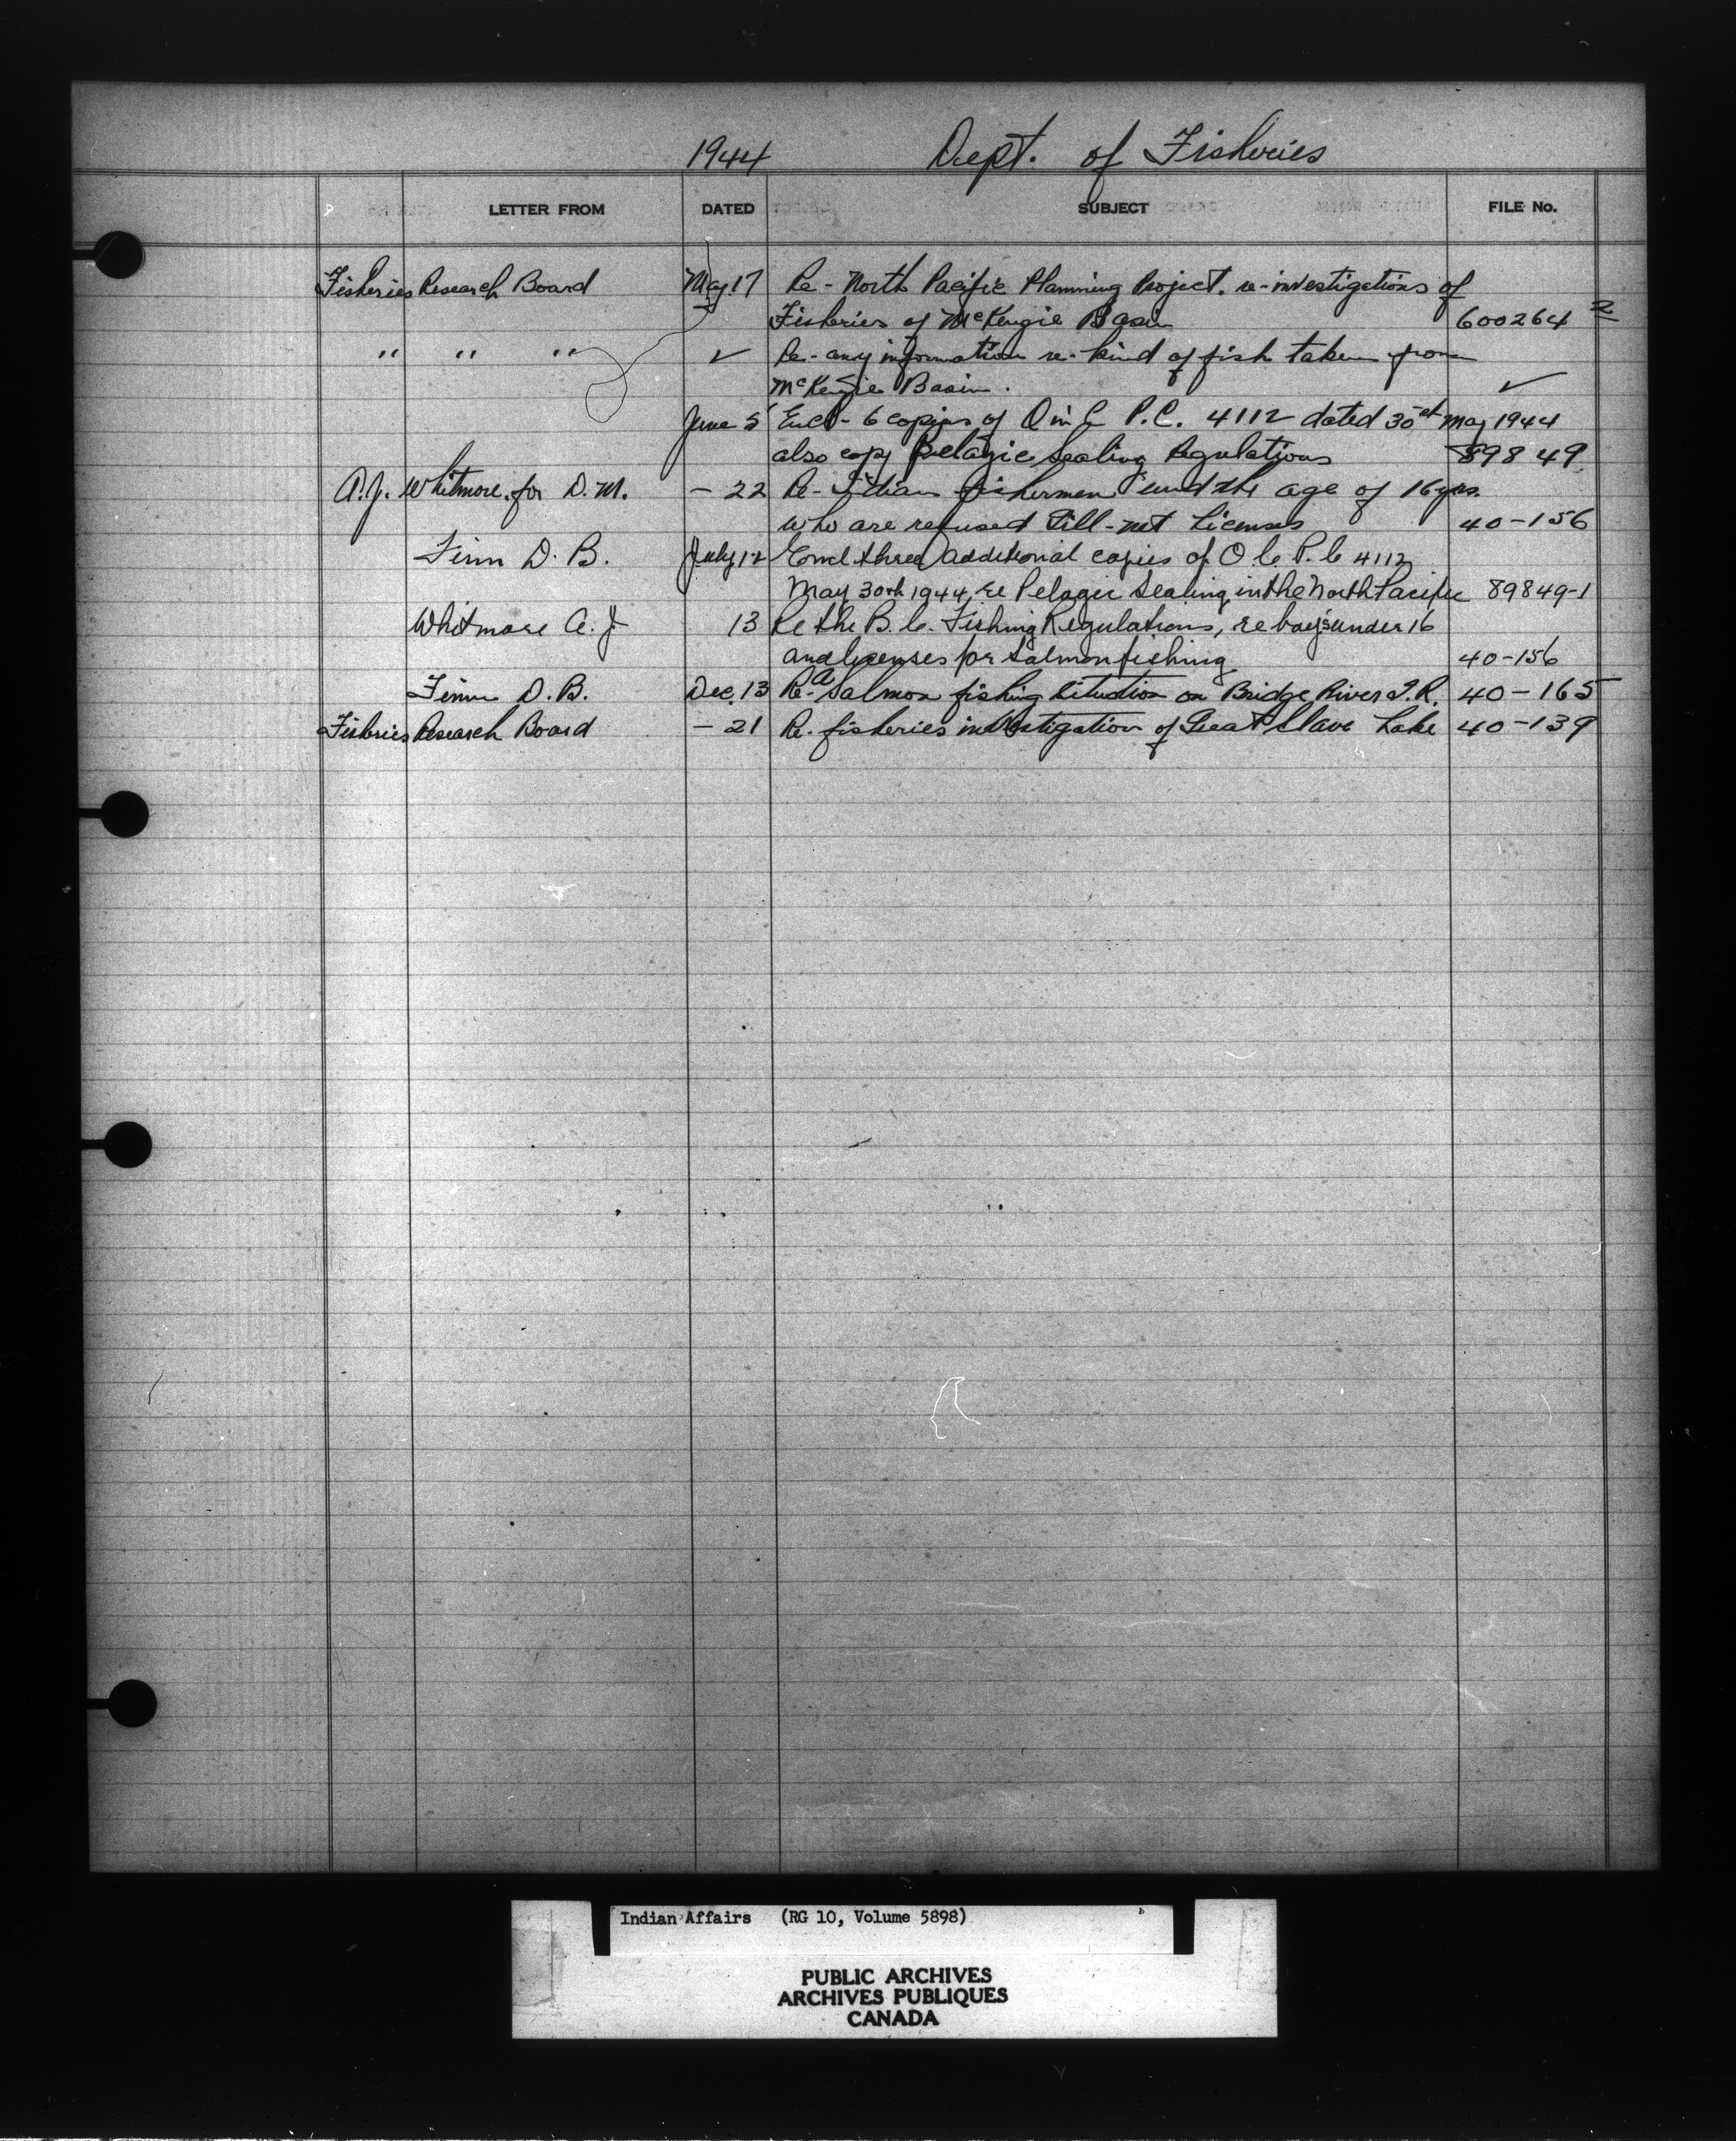 1944 Dept. of Fisheries
LETTER FROM DATED SUBJECT FILE No.
Fisheries Research Board May. 17 Re - North Pacific Planning Project. re-investigations of
Fisheries of McKenzie Basin 600264 2
" " " ✓ Re- any information re- kind of fish taken from
McKenzie Basin. ✓
June 5 Encl- 6 copies of O in C P.C. 4112 dated 30 May 1944
also copy Pelagic Sealing Regulations 89849
A.J. Whitmore, for D.M. - 22 Re- Indian fishermen und the age of 16 yrs.
who are refused Gill-net Licenses 40-156
Finn D. B. July 12 Encl three additional copies of O.C. P.C 4112
May 30th 1944, re Pelagic Sealing in the North Pacific 89849-1
Whitmore A. J 13 Re the B.C. Fishing Regulations, re boys under 16
and licenses for Salmon fishing 40-156
Finn D. B. Dec. 13 Re. a Salmon fishing situation on Bridge River I.R. 40-165
Fisheries Research Board - 21 Re. fisheries investigation of Great Slave Lake 40-139
Indian Affairs (RG 10, Volume 5898)
PUBLIC ARCHIVES
ARCHIVES PUBLIQUES
CANADA